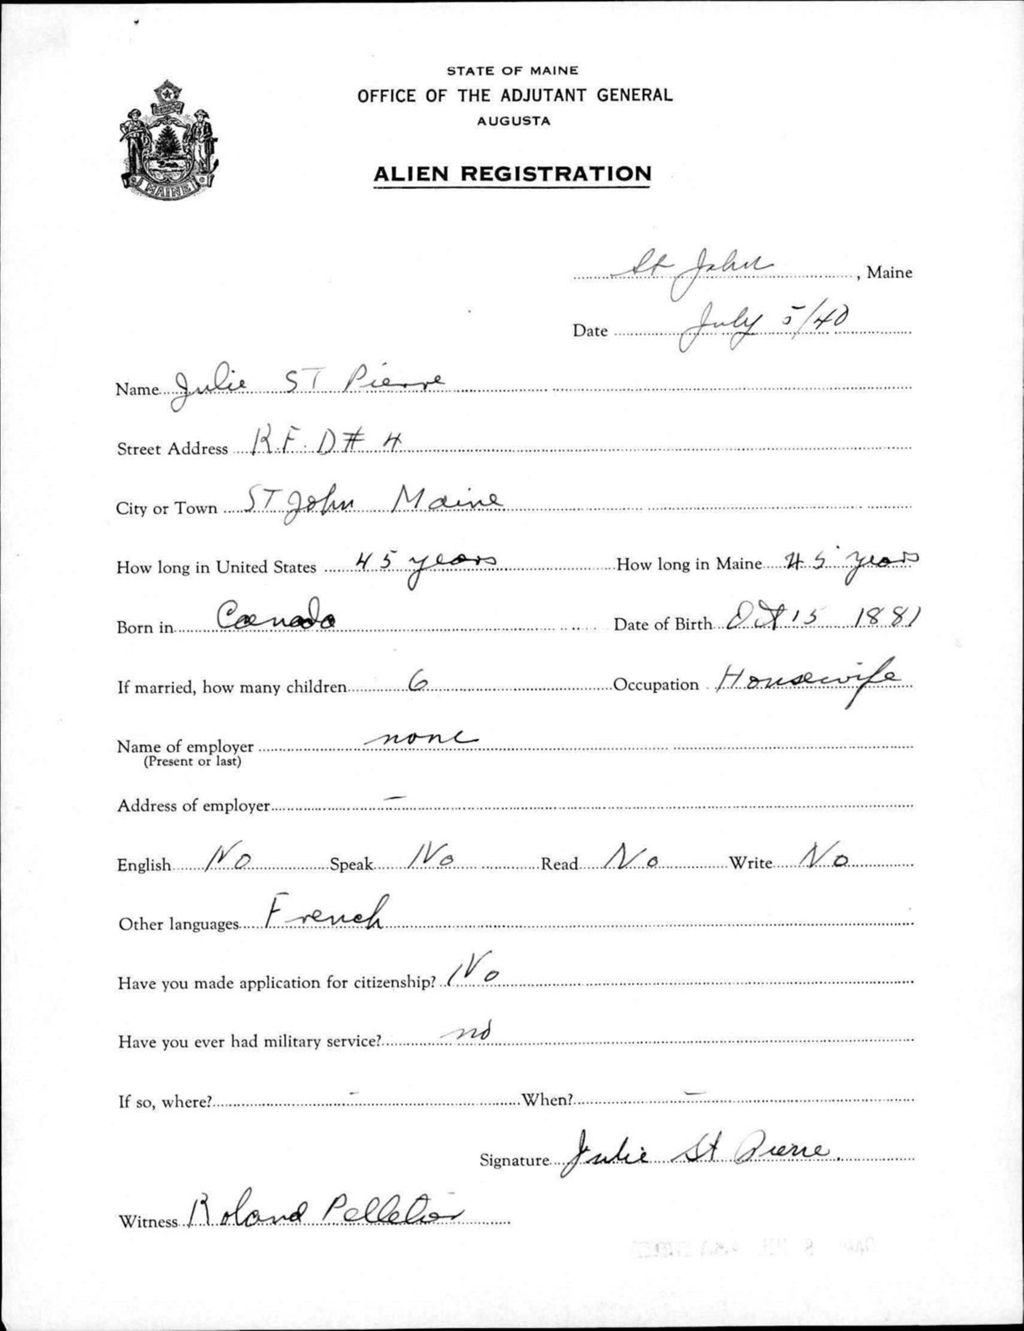 STATE OF MAINE
OFFICE OF THE ADJUTANT GENERAL
AUGUSTA
ALIEN REGISTRATION
MAINE
St John, Maine
Date July 5/40
Name Julie ST Pierre
Street Address R.F.D # 4
City or Town ST John Maine
How long in United States 45 years How long in Maine 45 years
Born in Canada Date of Birth Oct 15 1881
If married, how many children 6 Occupation Housewife
Name of employer none
(Present or last)
Address of employer —
English No Speak No Read No Write No
Other languages French
Have you made application for citizenship? No
Have you ever had military service? no
If so, where? - When? —
Signature Julie St Pierre.
Witness Roland Pelletier